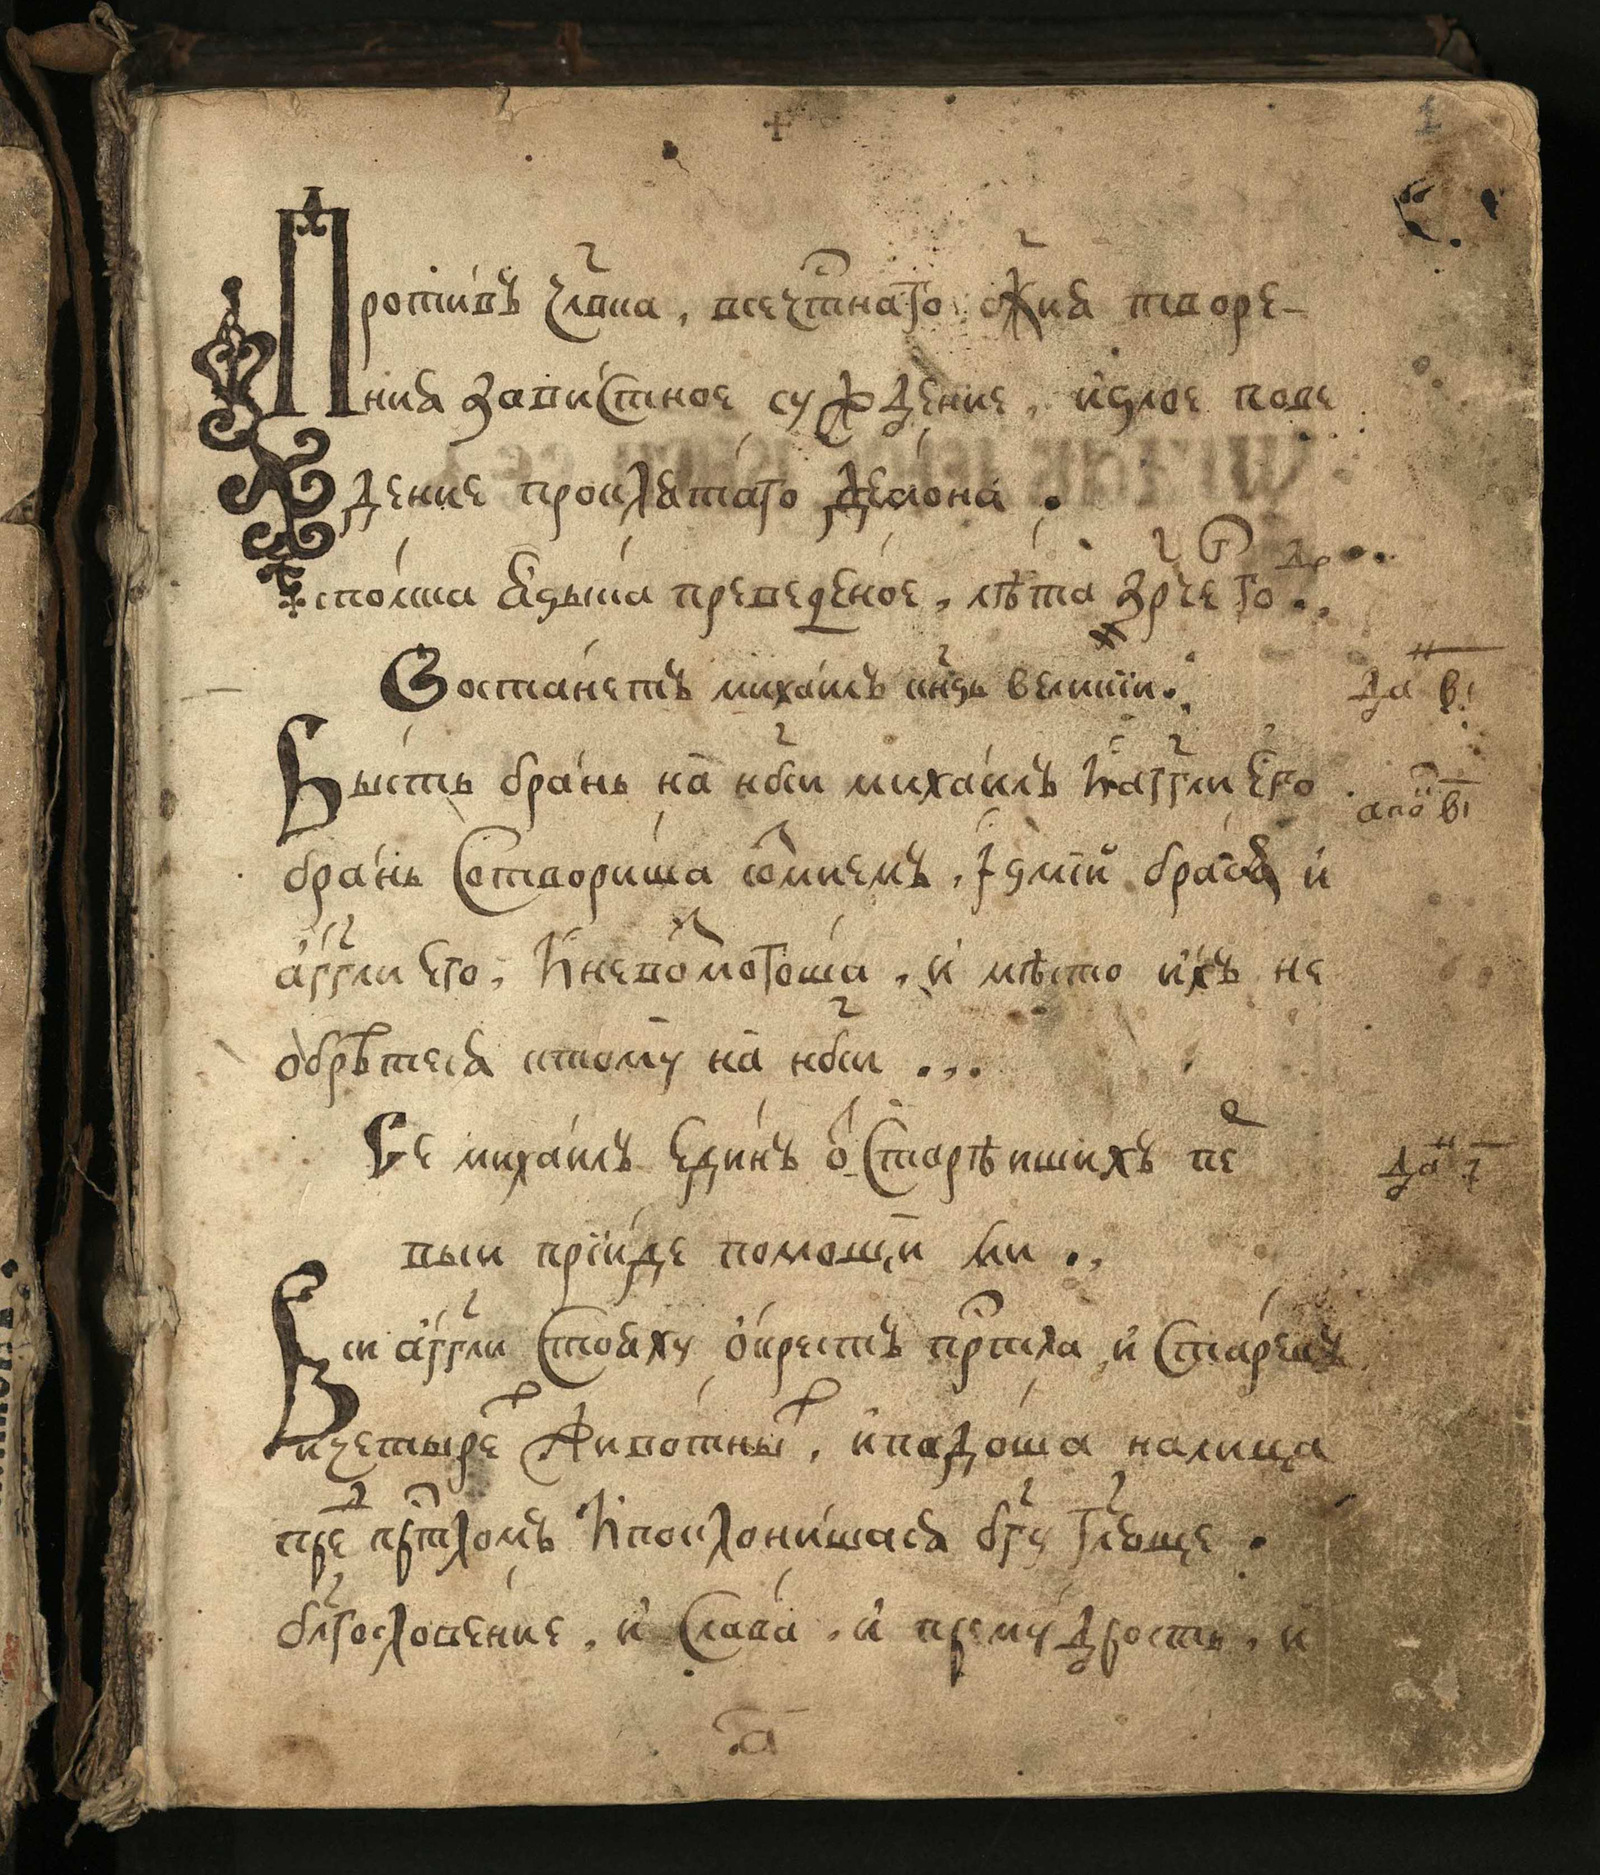 Против̾ члвка, всечтⷭ҇наго б҃жия творе-
ния завистное суждение, и ѕлое пове
дение проклятаго демона .
с полска языка преведеное, лѣта ҂зрчє го
Востанетъ михаилъ кн҃зь великїи.
да н҃ в҃і
Бысть брань на нб҃си михаилъ и агг҃ли его
апо в҃і
брань сотвориша со ѕмиемъ, и ѕмїй брася и
агг҃ли его, и не возмогоша, и мѣсто ихъ не
обрѣтеся ктому на нб҃си ...
Се михаилъ единъ ѿ старѣишихъ пе
да н҃ і҃
рвыи прїиде помощи ми .,
Вси агг҃ли стояху окрестъ прⷭ҇тла и старецъ
и четырех животных, и падоша на лица
преⷣ прⷭ҇тлом и поклонишася бг҃у гл҃юще .
бл҃гословение, и слава, и премудрость, и
а҃